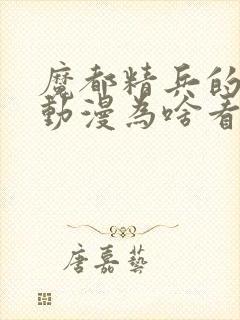 魔都精兵的
動漫為啥看
唐嘉藝